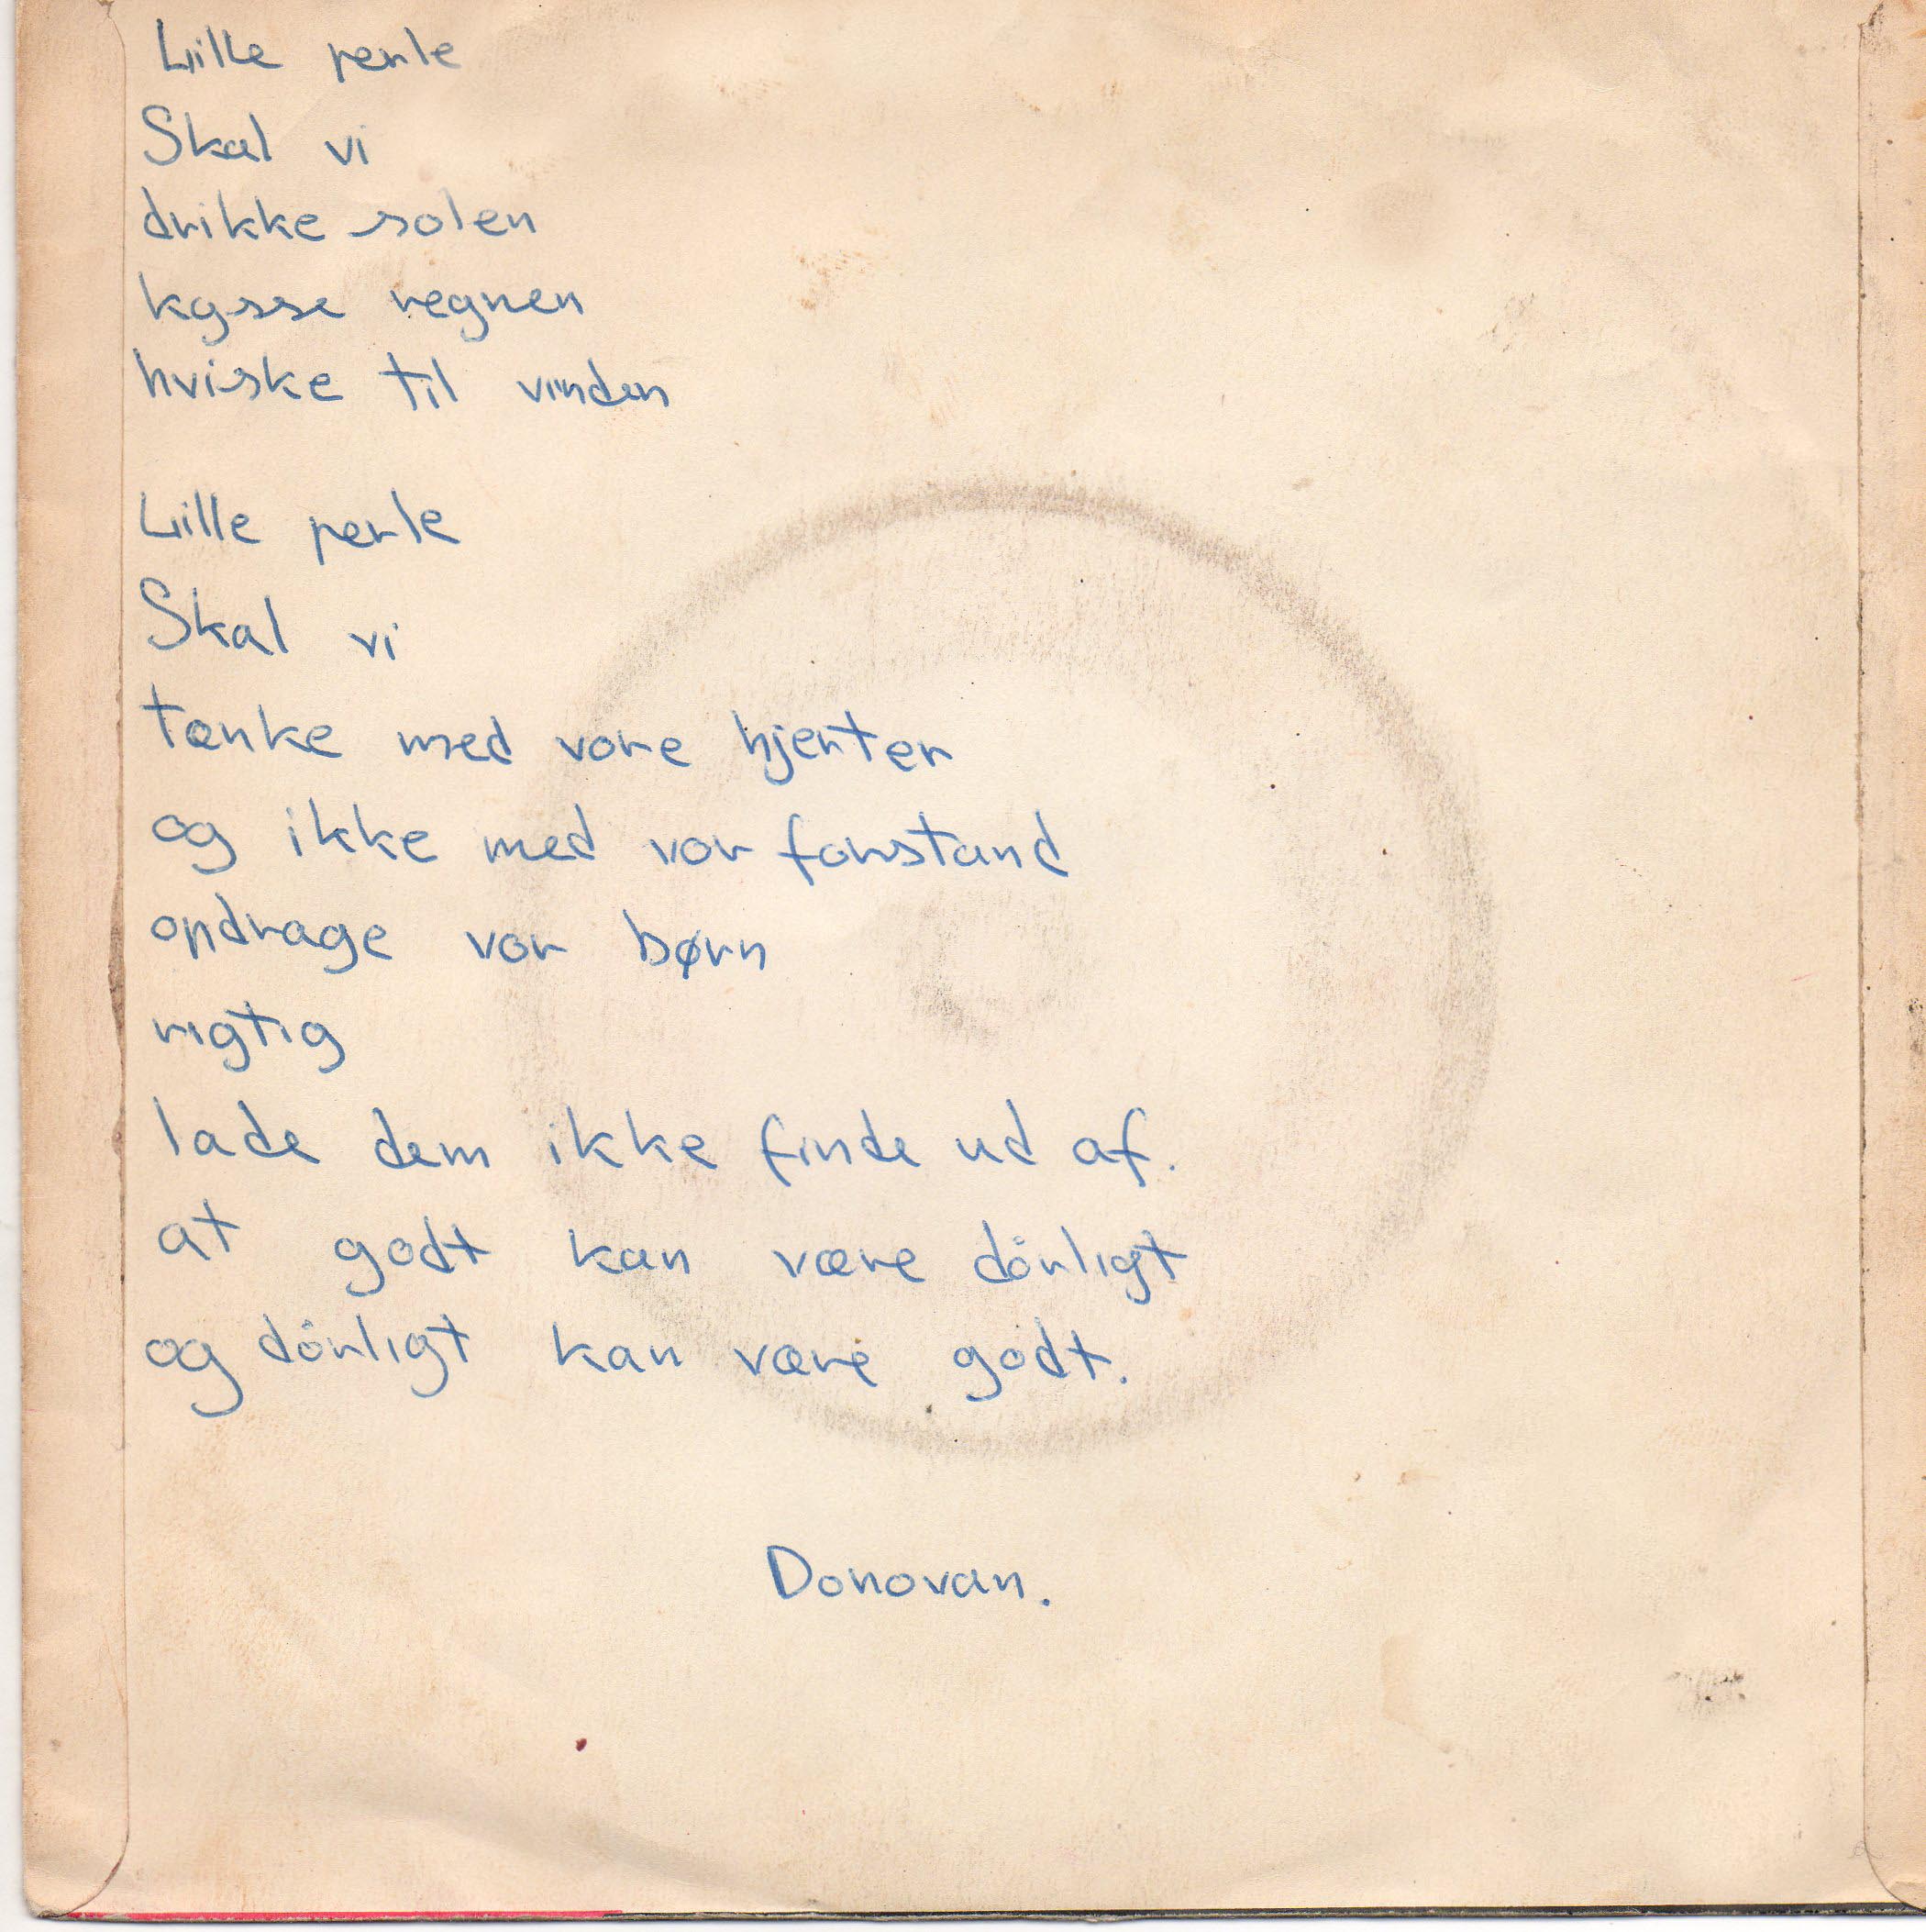 Lille perle
Skal vi
drikke solen
kysse regnen
hviske til vinden
Lille perle
Skal vi
tænke med vore hjerter
og ikke med vor forstand
opdrage vor børn
rigtig
lade dem ikke finde ud af.
at godt kan være dårligt
og dårligt kan være godt.
Donovan.